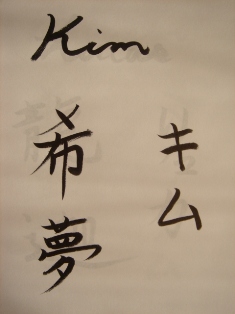 Kim
希夢
キム